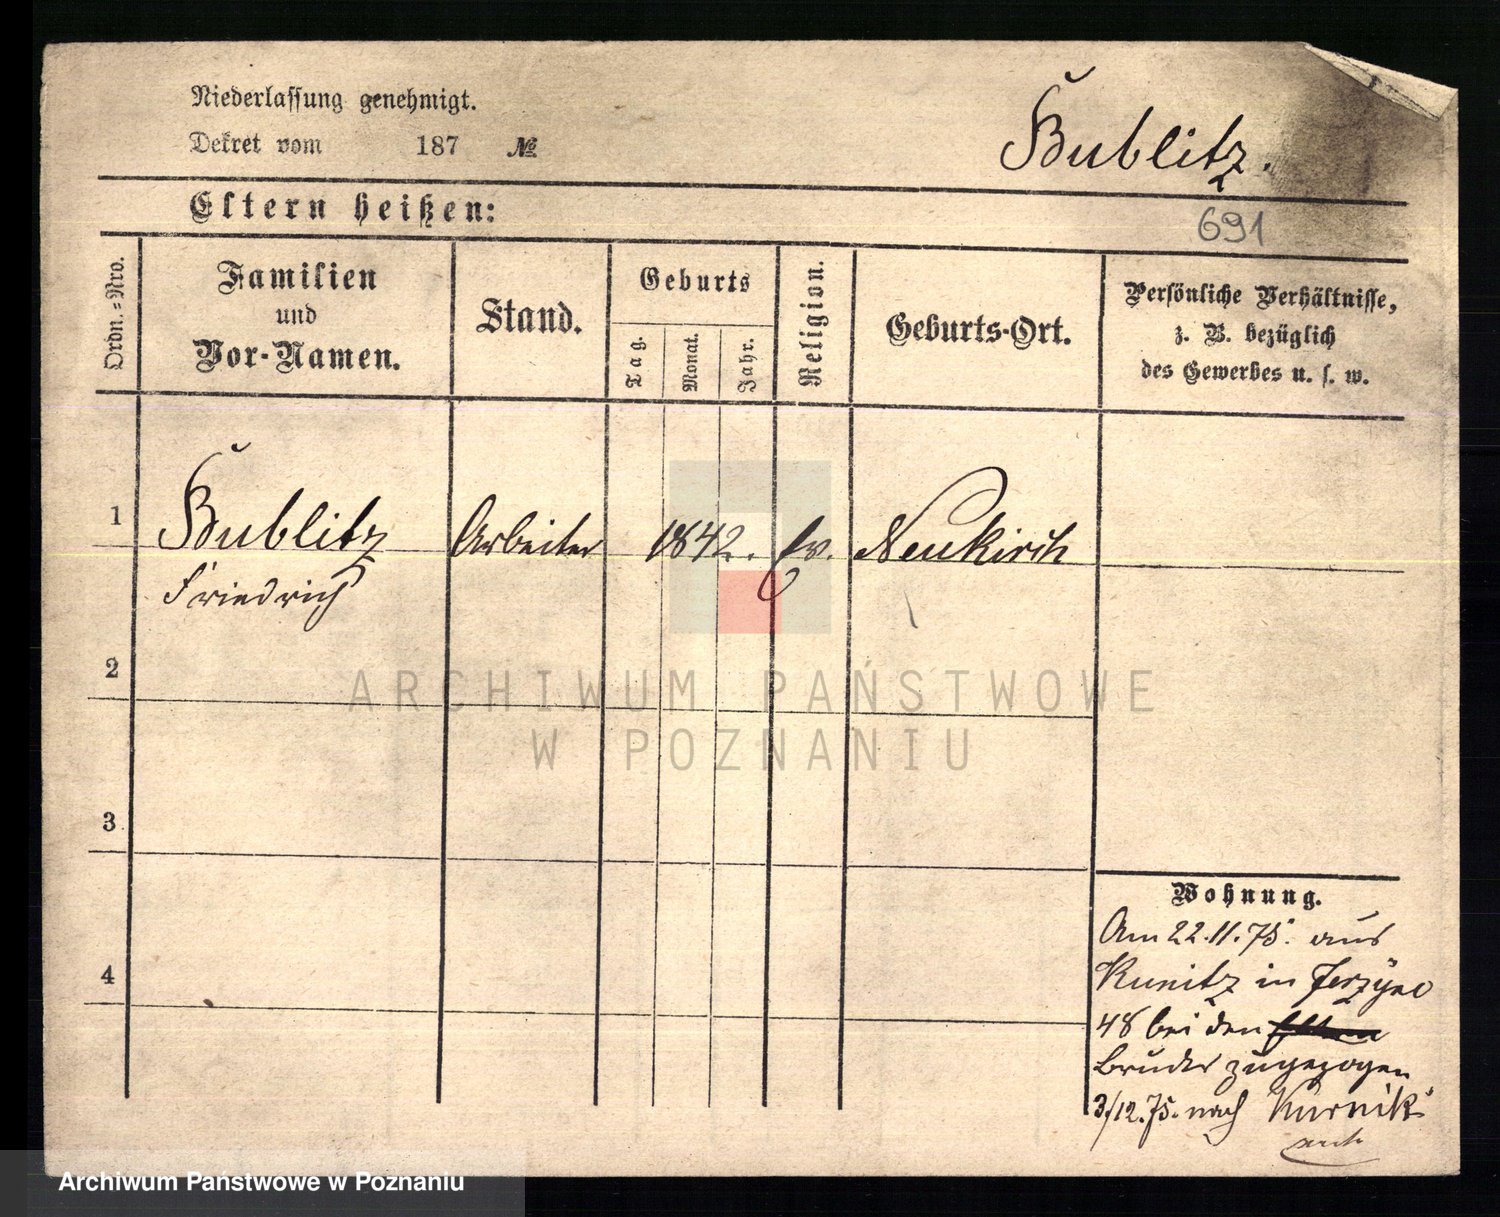 Niederlassung genehmigt.
Dekret vom 187 №
Bublitz.
Eltern heißen:
691
Ordn.=Nro.
Familien
und
Vor-Namen.
Stand.
Geburts
Tag.
Monat.
Jahr.
Religion.
Geburts-Ort.
Persönliche Verhältnisse,
z. B. bezüglich
des Gewerbes u. s. w.
1
Bublitz Arbeiter 1842. Ev. Neukirch
Friedrich
2
ARCHIWUM PAŃSTWOWE
W POZNANIU
3
4
Wohnung.
Am 22.11.75. aus
Kunitz in
48 bei den Eltern
Bruder zugezogen
3/12.75. nach Kurnik
Archiwum Państwowe w Poznaniu